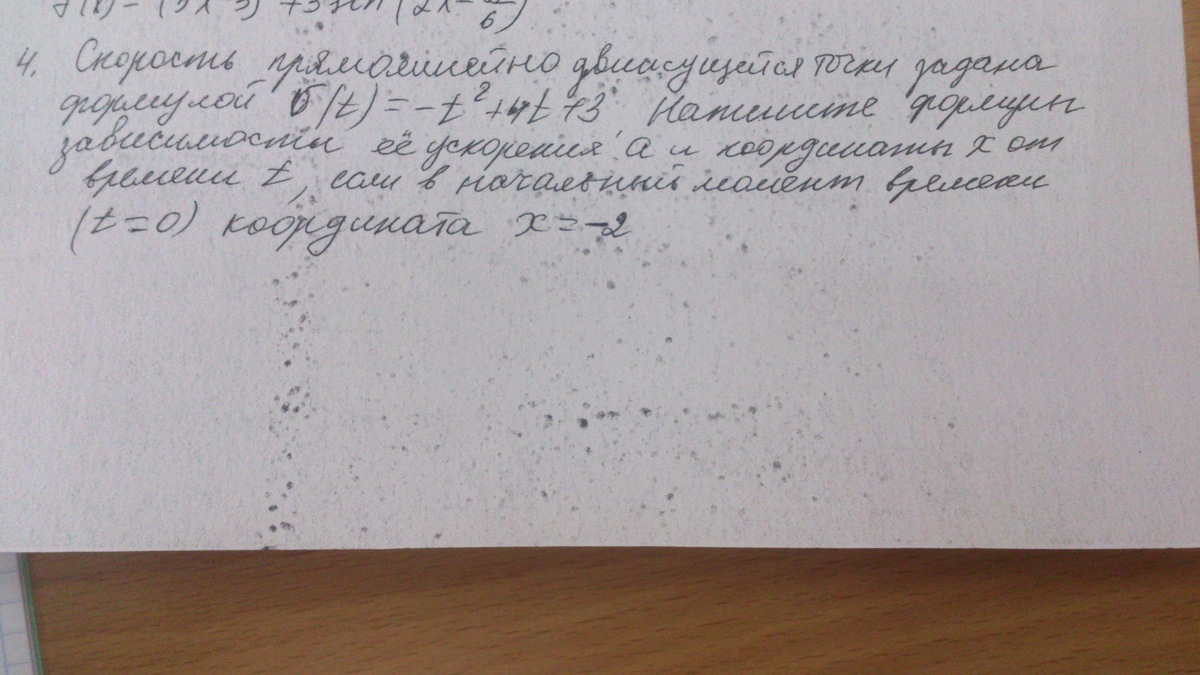 f(x) = (5x-3) +3 sin (2x- /6)
4. Скорость прямолинейно движущейся точки задана
формулой v(t)=-t²+4t+3 Напишите формулы
зависимости её ускорения a и координаты x от
времени t, если в начальный момент времени
(t=0) координата x=-2